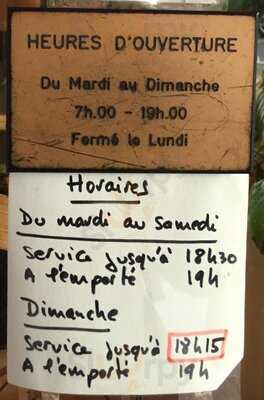 HEURES D'OUVERTURE
Du Mardi au Dimanche
7h.00 - 19h.00
Fermé le Lundi
Horaires
Du mardi au samedi
Service jusqu'à 18h30
A l'emporté 19h
Dimanche
Service jusqu'à 18h15
A l'emporté 19h